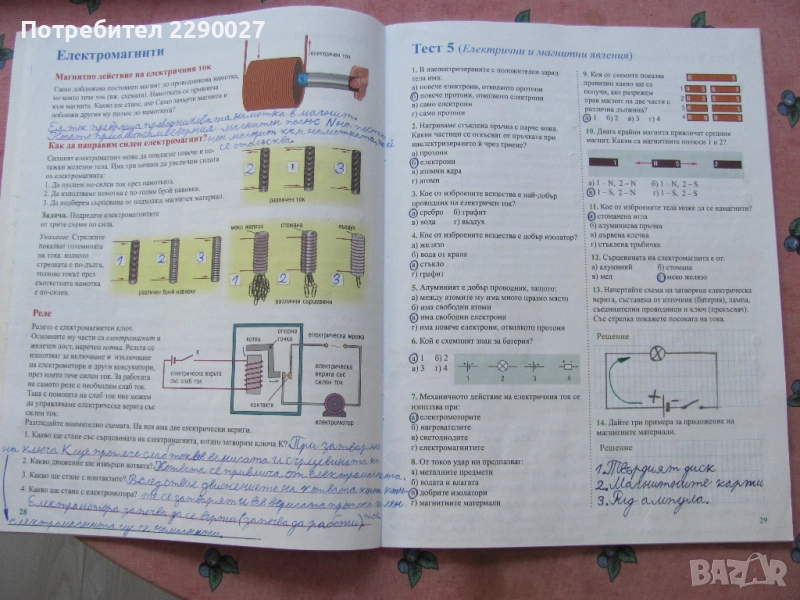 Потребител 2290027
Електромагнити
електричен ток
Магнитно действие на електричния ток
Как да направим силен електромагнит?
Силният електромагнит може да повдигне повече и по-
тежки железни тела. Има три начина да увеличим силата
на електромагнита:
1. Да пуснем по-силен ток през намотката.
2. Да използваме намотка с по-голям брой навивки.
3. Да подберем сърцевина от подходящ магнитен материал.
2 1 3
различен ток
Задача. Подредете електромагнитите
от трите схеми по сила.
Указание. Стрелките
показват големината
на тока: колкото
стрелката е по-дълга,
толкова токът през
съответната намотка
е по-силен.
1 2 3
различен брой навивки
меко желязо стомана въздух
1 2 3
различни сърцевини
Реле
Релето е електромагнитен ключ.
Основните му части са електромагнит и
железен лост, наречен котва. Релето се
използва за включване и изключване
на електромотори и други консуматори,
през които тече силен ток. За работата
на самото реле е необходим слаб ток.
Така с помощта на слаб ток ние можем
да управляваме електрическа верига със
силен ток.
K
електрическа верига
със слаб ток
котва
опорна
точка
контакти
електрическа верига
със
силен ток
електромотор
Разгледайте внимателно схемата. На нея има две електрически вериги.
1. Какво ще стане със сърцевината на електромагнита, когато затворим ключа К? При затваряне
на ключа К ще протече слаб ток във веригата и сърцевината на
2. Какво движение ще извърши котвата? Котвата се привлича от електромагнита.
3. Какво ще стане с контактите? Вследствие движението на котвата контакти-
4. Какво ще стане с електромотора? те се затварят и във веригата протича силен
Електромотора започва да се върти (започва да работи) ток.
електромагнита ще се намагнити.
28
Тест 5 (Електрични и магнитни явления)
1. В наелектризираните с положителен заряд
тела има:
а) повече протони, отколкото електрони
в) само електрони
г) само протони
2. Натриваме стъклена пръчка с парче кожа.
Какви частици се изтръгват от пръчката при
наелектризирането ѝ чрез триене?
а) протони
б) електрони
в) атомни ядра
г) атоми
3. Кое от изброените вещества е най-добър
проводник на електричен ток?
а) сребро б) графит
в) вода г) въздух
4. Кое от изброените вещества е добър изолатор?
а) желязо
б) вода от крана
в) стъкло
г) графит
5. Алуминият е добър проводник, защото:
а) между атомите му има много празно място
б) има свободни атоми
в) има свободни електрони
г) има повече електрони, отколкото протони
6. Кой е схемният знак за батерия?
а) 1 б) 2
в) 3 г) 4
1 2 3 4
7. Механичното действие на електричния ток се
използва при:
а) електромоторите
б) нагревателите
в) светодиодите
г) електромагнитите
8. От токов удар ни предпазват:
а) металните предмети
б) водата и влагата
в) добрите изолатори
г) магнитните материали
9. Коя от схемите показва
правилно какво ще се
получи, ако разрежем
прав магнит на две части с
различна дължина?
а) 1 б) 2 в) 3 г) 4
10. Двата крайни магнита привличат средния
магнит. Какви са магнитните полюси 1 и 2?
1 N S 2
а) 1 – N, 2 – N б) 1 – N, 2 – S
в) 1 – S, 2 – N г) 1 – S, 2 – S
11. Кое от изброените тела може да се намагнити?
а) стоманена игла
б) алуминиева пръчка
в) дървена клечка
г) стъклена тръбичка
12. Сърцевината на електромагнита е от:
а) алуминий б) стомана
в) мед г) меко желязо
13. Начертайте схема на затворена електрическа
верига, съставена от източник (батерия), лампа,
съединителни проводници и ключ (прекъсвач).
Със стрелка покажете посоката на тока.
Решение
+ –
14. Дайте три примера за приложение на
магнитните материали.
Решение
1. Твърдият диск
2. Магнитните карти
3. Рид ампула.
29
BAZAR